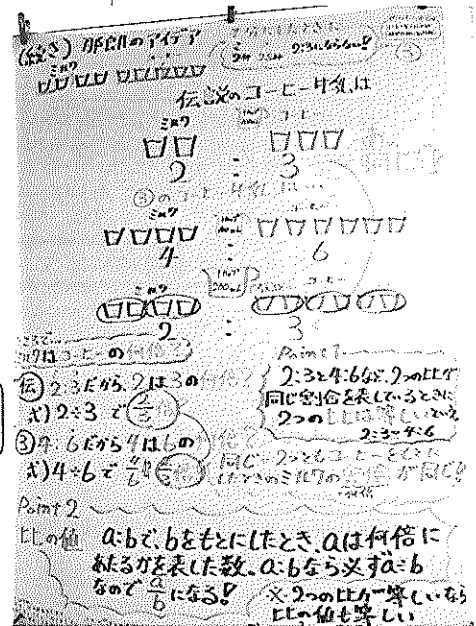 (続き)
のアイデア
ミルク
2:3にならない!
伝説のコーヒー牛乳は
ミルク
コーヒー
2 : 3
③のコーヒー牛乳
ミルク
4 : 6
200mL
ミルク
2 : 3
ミルクはコーヒーの何倍?
伝 2:3だから、2は3の何倍?
式) 2÷3 で 2/3倍
③ 4:6だから4は6の何倍?
式) 4÷6で 4/6
Point 1
2:3と4:6など、2つの比が
同じ割合を表しているときに
2つの比は等しいという
2:3=4:6
同じ 2つともコーヒーをもとに
したときのミルクの割合が同じ!
Point 2
比の値
a:bで、bをもとにしたとき、aは何倍に
あたるかを表した数。a:bなら必ずa÷b
なので a/b になる!
※2つの比が等しいなら
比の値も等しい